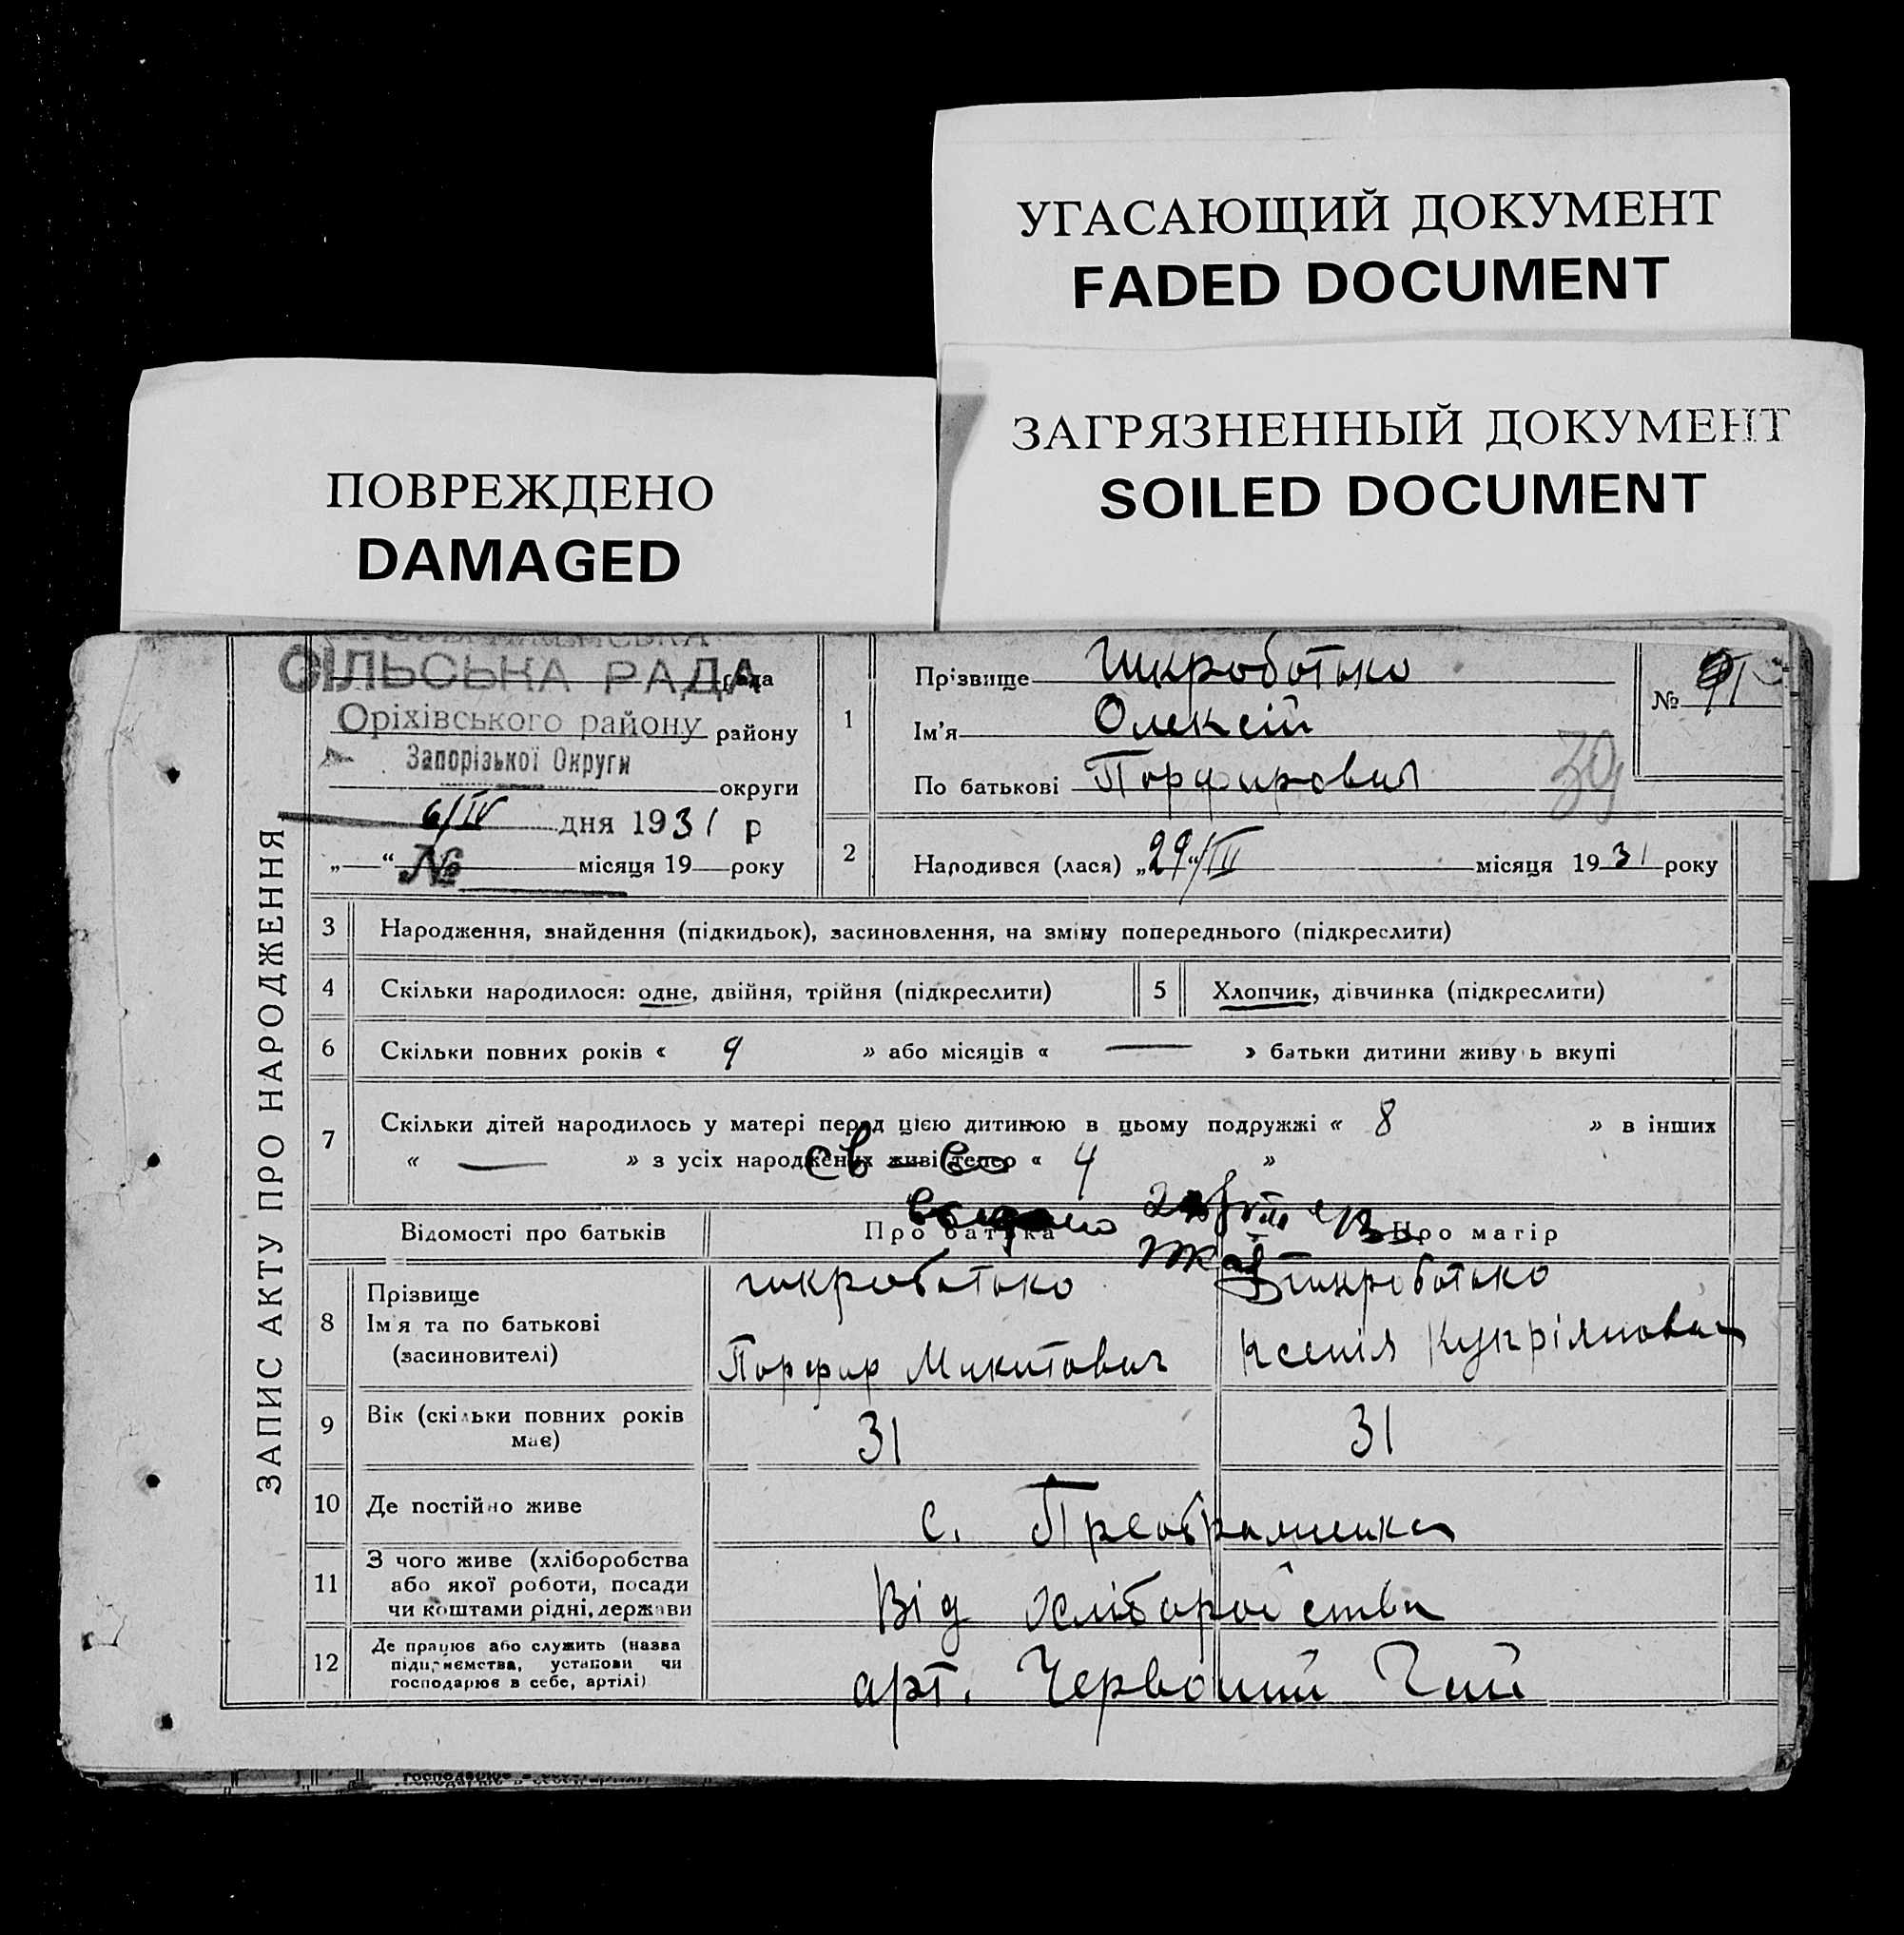 УГАСАЮЩИЙ ДОКУМЕНТ
FADED DOCUMENT
ЗАГРЯЗНЕННЫЙ ДОКУМЕНТ
SOILED DOCUMENT
ПОВРЕЖДЕНО
DAMAGED
ЗАПИС АКТУ ПРО НАРОДЖЕННЯ
СІЛЬСЬКА РАДА рада
Оріхівського району району
Запорізької Округи
округи
6/IV дня 1931 р
„—“ № місяця 19 року
1 Прізвище Шкроботько
Ім'я Олексій
По батькові Порфирович
№
39
2 Народився (лася) „29“/III місяця 1931 року
3 Народження, знайдення (підкидьок), засиновлення, на зміну попереднього (підкреслити)
4 Скільки народилося: одне, двійня, трійня (підкреслити)
5 Хлопчик, дівчинка (підкреслити)
6 Скільки повних років « 9 » або місяців « — » батьки дитини живуть вкупі
7 Скільки дітей народилось у матері перед цією дитиною в цьому подружжі « 8 » в інших
« — » з усіх народжених живі тепер « 4 »
Відомості про батьків Про батька Про матір
8 Прізвище
Ім'я та по батькові
(засиновителі)
Шкроботько Шкроботько
Порфир Микитович Ксенія Купріяновна
9 Вік (скільки повних років має) 31 31
10 Де постійно живе с. Преображенка
11 З чого живе (хліборобства
або якої роботи, посади
чи коштами рідні, держави
Від хліборобства
12 Де працює або служить (назва
підприємства, установи чи
господарює в себе, артілі)
арт. Червоний Гай